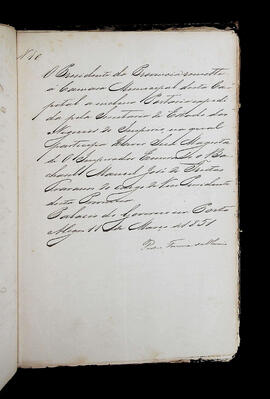 Nº 10
O Presidente da Provincia remette
á Camara Municipal desta Ca-
pital a inclusa Portaria expedi-
da pela Secretaria de Estado dos
Negocios do Imperio, na qual
participa Haver Sua Magesta-
de O Imperador Exonerado o Ba-
charel Manoel José de Freitas
Travassos do cargo de Vice Presidente
desta Provincia.
Palacio do Governo em Porto
Alegre 11 de Março de 1851